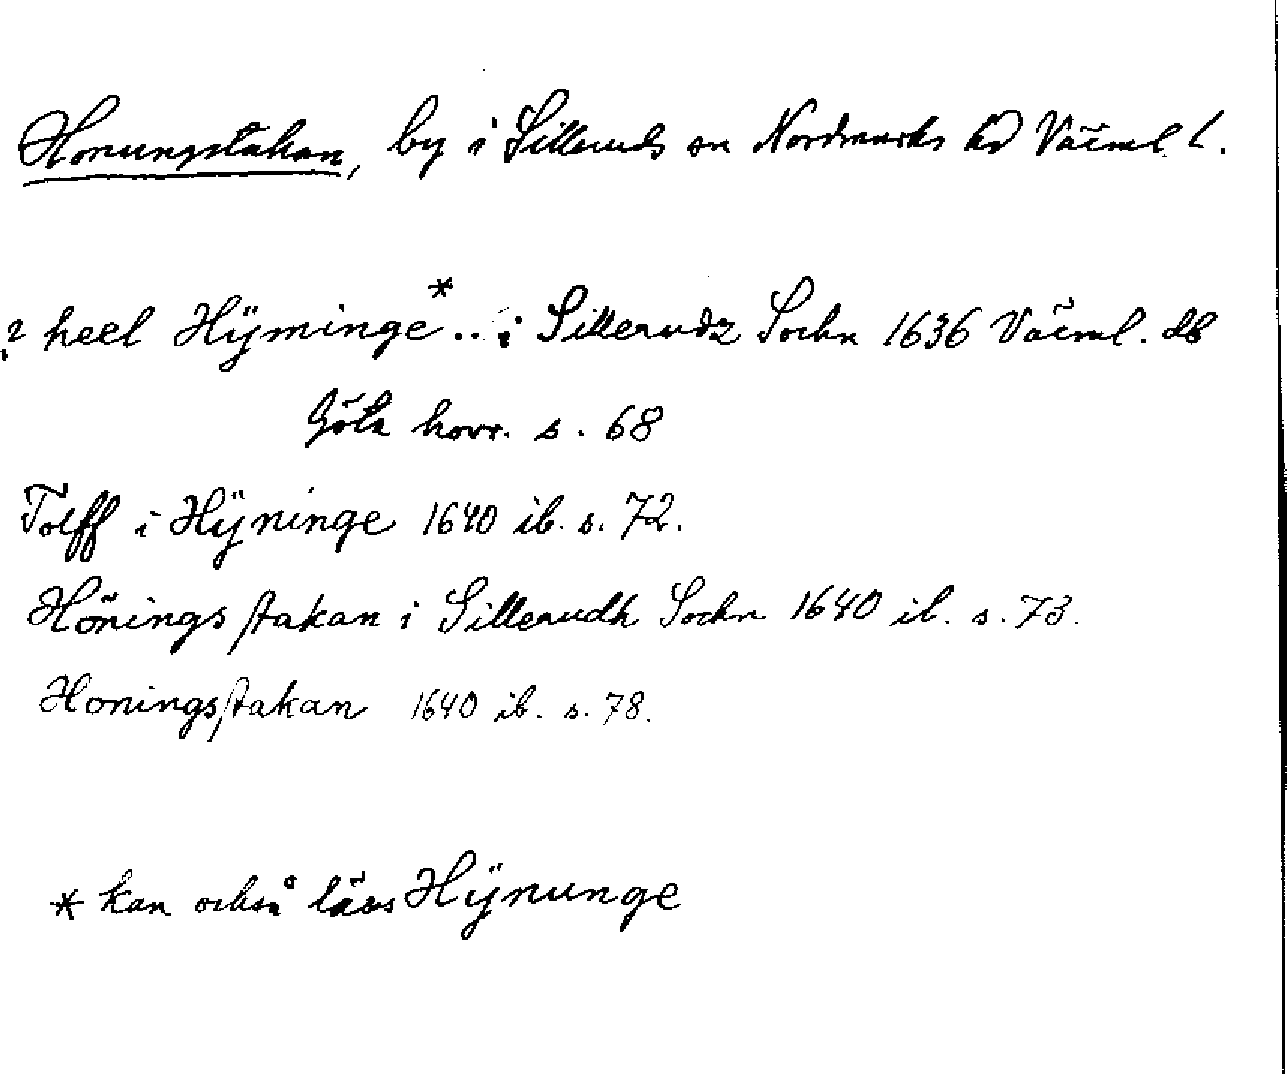 Honungstakan, by i Silleruds sn Nordmarks hd Värml. l.
? heel Hÿminge* .. i Sillerudz Sochn 1636 Värml. db
Göta hovr. s. 68
Tolff i Hÿninge 1640 ib. s. 72.
Höningsstakan i Sillerudh Sochn 1640 ib. s. 73.
Honingsstakan 1640 ib. s. 78.
* kan också läsas Hÿnunge